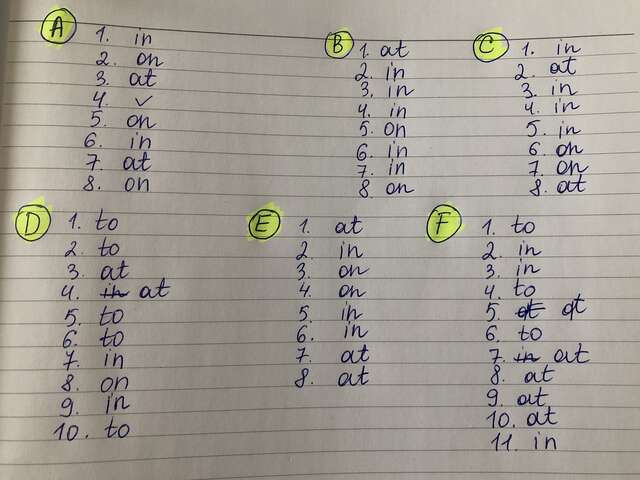 A
1. in
2. on
3. at
4. ✓
5. on
6. in
7. at
8. on
B
1. at
2. in
3. in
4. in
5. on
6. in
7. in
8. on
C
1. in
2. at
3. in
4. in
5. in
6. on
7. on
8. at
D
1. to
2. to
3. at
4. in at
5. to
6. to
7. in
8. on
9. in
10. to
E
1. at
2. in
3. on
4. on
5. in
6. in
7. at
8. at
F
1. to
2. in
3. in
4. to
5. at
6. to
7. in at
8. at
9. at
10. at
11. in